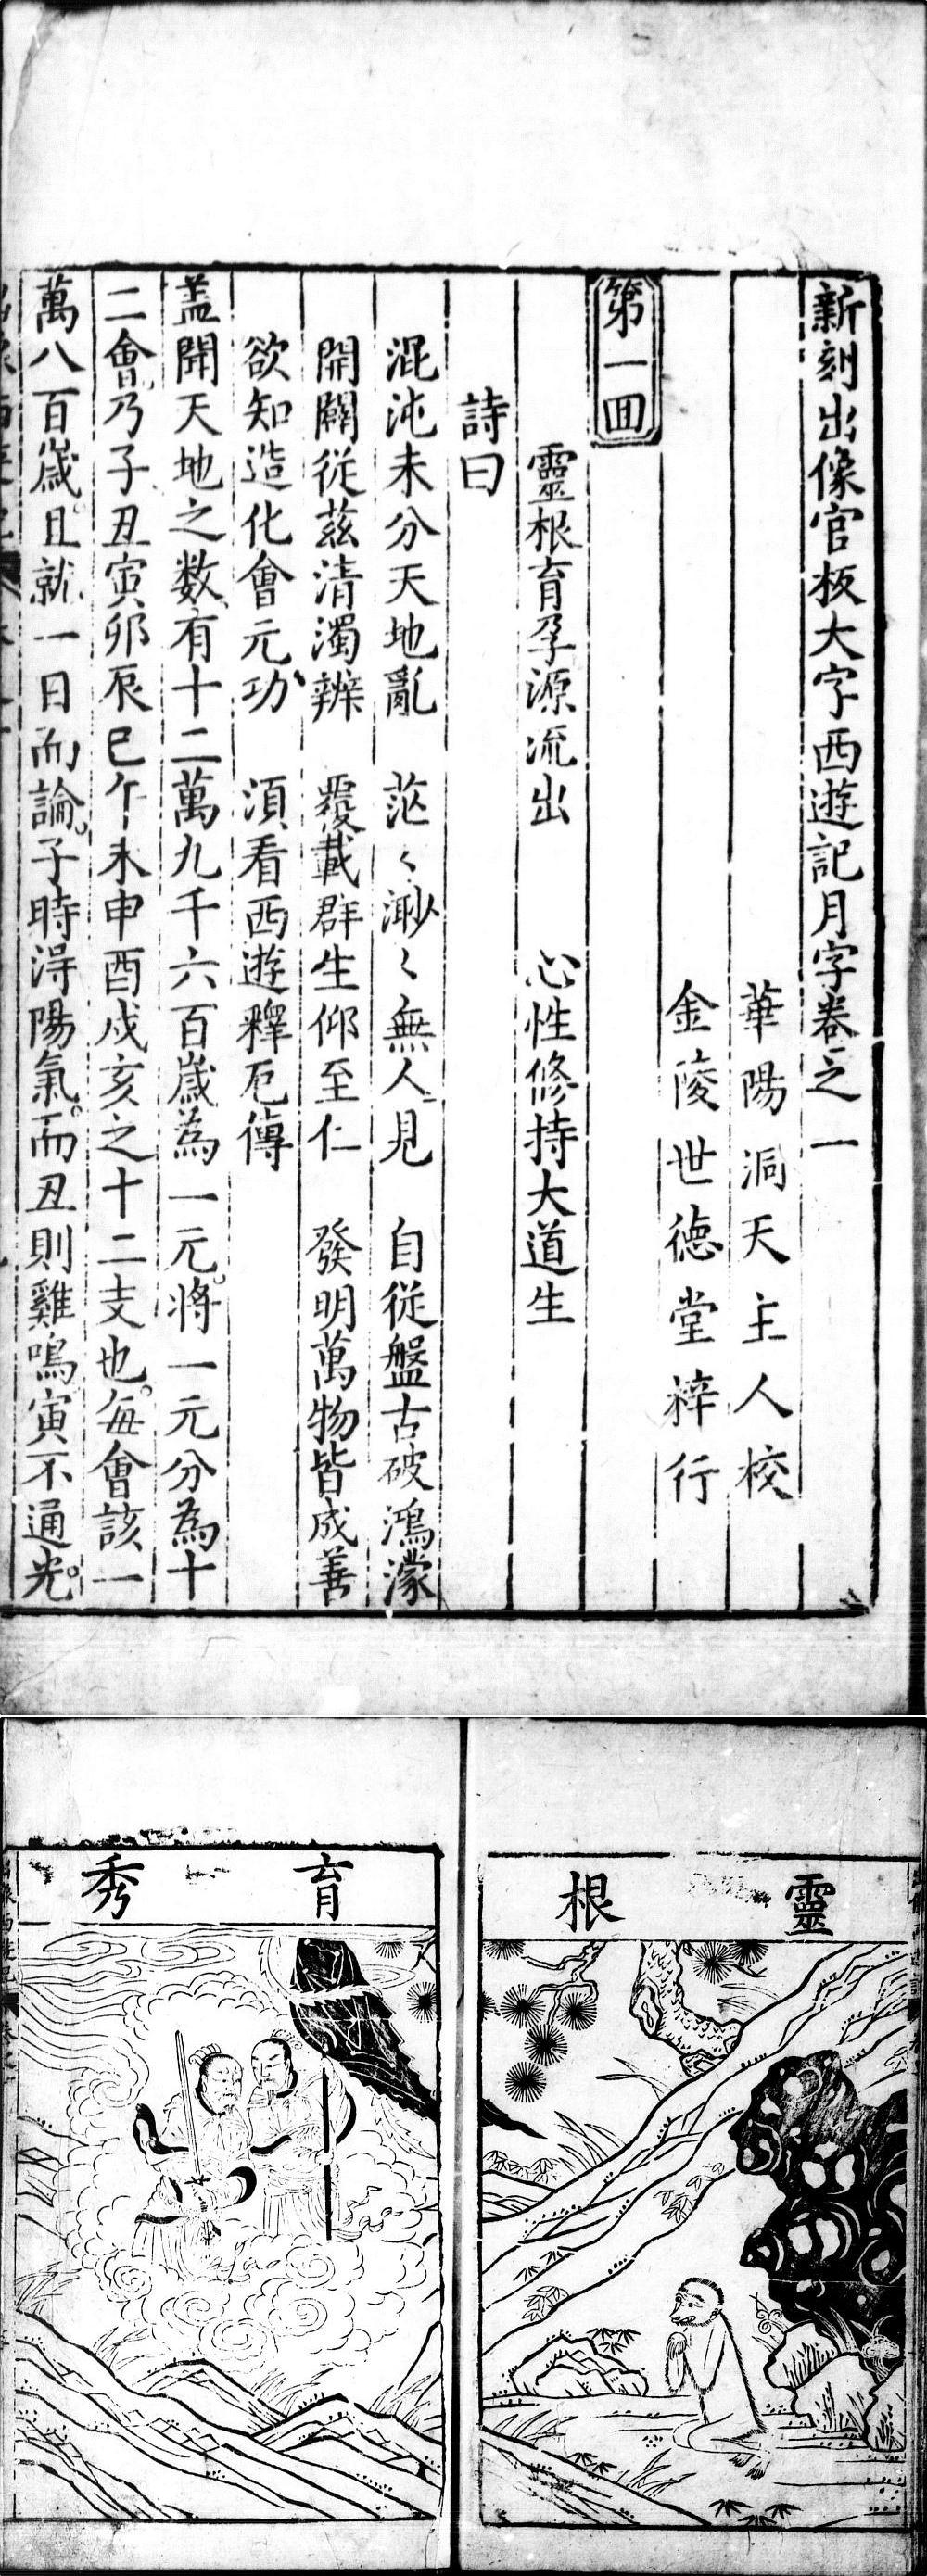 新刻出像官板大字西遊記月字卷之一
華陽洞天主人校
金陵世德堂梓行
第一回
靈根育孕源流出　心性修持大道生
詩曰
混沌未分天地亂　茫〻渺〻無人見　自從盤古破鴻濛
開闢從茲清濁辨　覆載群生仰至仁　發明萬物皆成善
欲知造化會元功　須看西遊釋厄傳
盖聞天地之数有十二萬九千六百歲為一元。將一元分為十
二會乃子丑寅卯辰巳午未申酉戌亥之十二支也。每會該一
萬八百歲。且就一日而論。子時得陽氣。而丑則雞鳴。寅不通光。
靈根
育秀